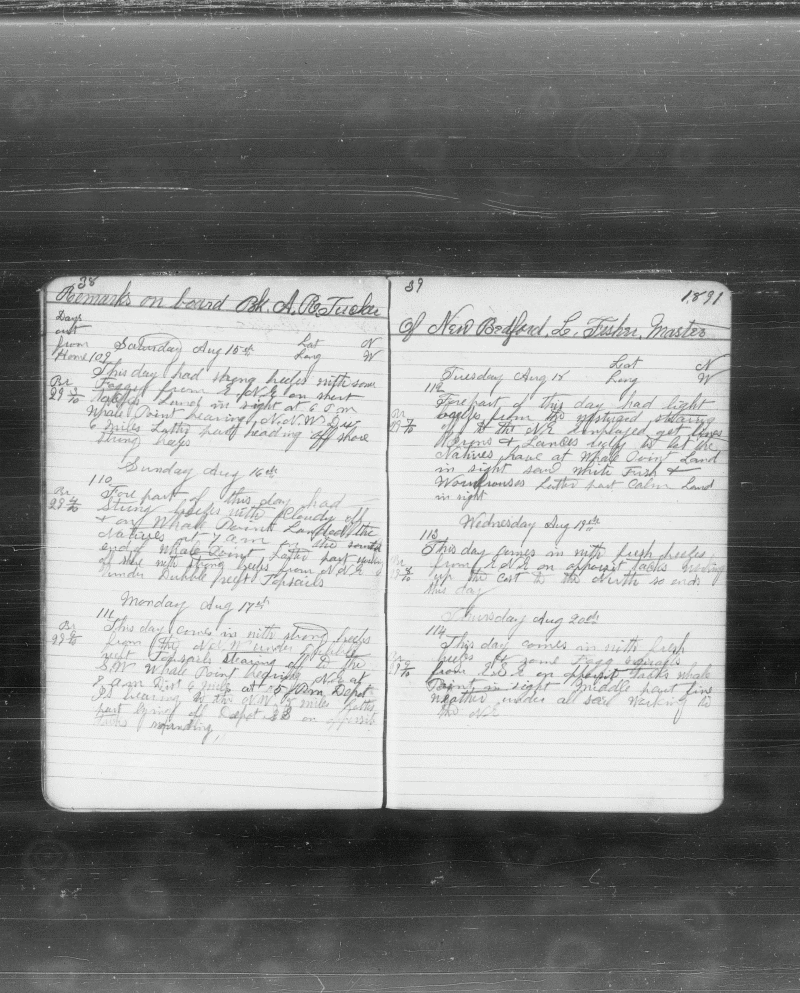 38
Remarks on board Bk. A. R. Tucker
Days
out
from Saturday Aug 15th Lat N
Home 109 Long W
This day had strong breeses with some
Br Foggs from E N.E on short
29 tacks Land in sight at 6 P.m
Whale Point bearing N.N.W Dis
6 miles Latter part heading off shore
strong breeses
Sunday Aug 16th
110
Br Fore part of this day had
29 strong breeses with Cloudy off
& on Whale Point Landed the
Natives at 7 a.m on the south
end of Whale Point Latter part
off shore with strong breeses from N N E
under Dubble reeft Topsails
Monday Aug 17th
111
Br This day comes in with strong breeses
29 from the N.N.W under Dubble
reeft Topsails stearing off to the
S.W Whale Point bearing N.E at
8 a.m Dist 6 miles at 5 P.m Depot
Id bearing N.W 15 miles Latter
part lying off Depot Id on oppisit
tacks
39
1891
Of New Bedford, L. Fisher, Master
Lat N
Tuesday Aug 18 Long W
112
Fore part of this day had light
Br breeses from stearing
29 off to the N.E employed
Irons & Lances
Natives have at Whale Point Land
in sight saw White Fish &
Latter part Calm Land
in sight
Wednesday Aug 19th
113
This day comes in with fresh breeses
from E N.E on oppisit tacks working
up the Cost to the North so ends
this day
Thursday Aug 20th
114
This day comes in with fresh
Br breeses & some Fogg squals
29 from E.S.E on oppisit tacks Whale
Point in sight Middle part fine
weather under all sail working to
the N.E